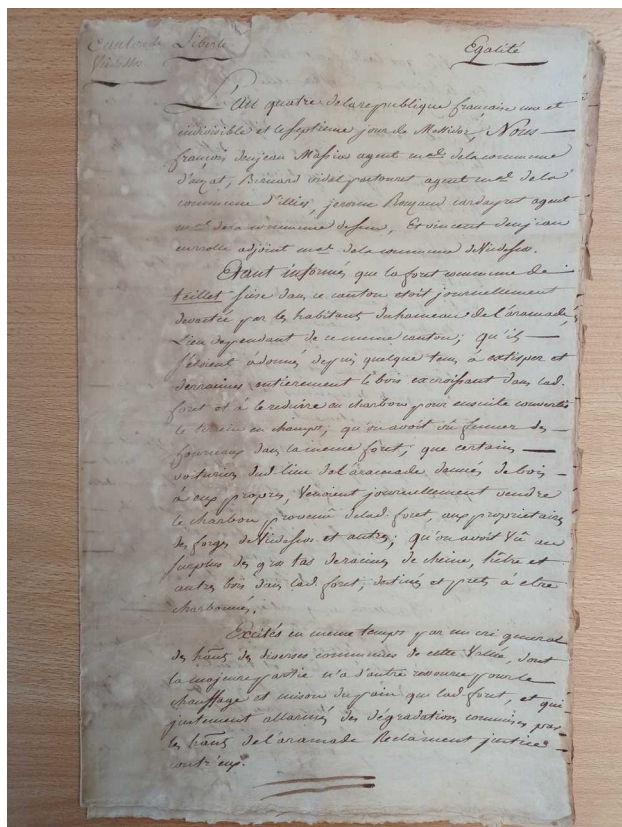 Canton de Liberté Egalité
Vicdessos
L'an quatre de la republique française une et
indivisible et le septieme jour de Messidor, Nous
françois denjean Massios agent mal. de la commune
d'auzat, Bernard vidal partouret agent mal. de la
commune d'illier, jerome Rouzaud cardayret agent
mal. de la commune de sem, Et vincent denjean
adjoint mal. de la commune de Vicdessos.
Etant informés que la foret commune de
teillet sise dans ce canton etoit journellement
devastée par les habitants du hameau de l'aramade,
Lieu dependant de ce meme canton; qu'ils
s'étoient adonnés depuis quelque tems à extirper et
derraciner entierement le bois excroissant dans lad.
foret et à le reduire en charbon pour ensuite convertir
le terrein en champs; qu'on avoit vû fumer des
fourneaux dans la meme forêt; que certains
voituriers dud. lieu de l'aramade de bois
à eux propres, Venoient journellement vendre
le charbon provenû de lad. foret, aux proprietaires
des forges de Vicdessos et autres; qu'on avoit vû au
surplus des gros tas de racines de cheine, hêtre et
autres bois dans lad. foret, destinés et prets à etre
charbonnés.
Excités en meme temps par un cri general
des hânts. des diverses communes de cette Vallée, dont
la majeure partie n'a d'autre ressource pour le
chauffage et cuison du pain que lad. foret, et qui
justement allarmés des dégradations commises par
les hânts. de l'aramade Reclament justice
contr'eux.